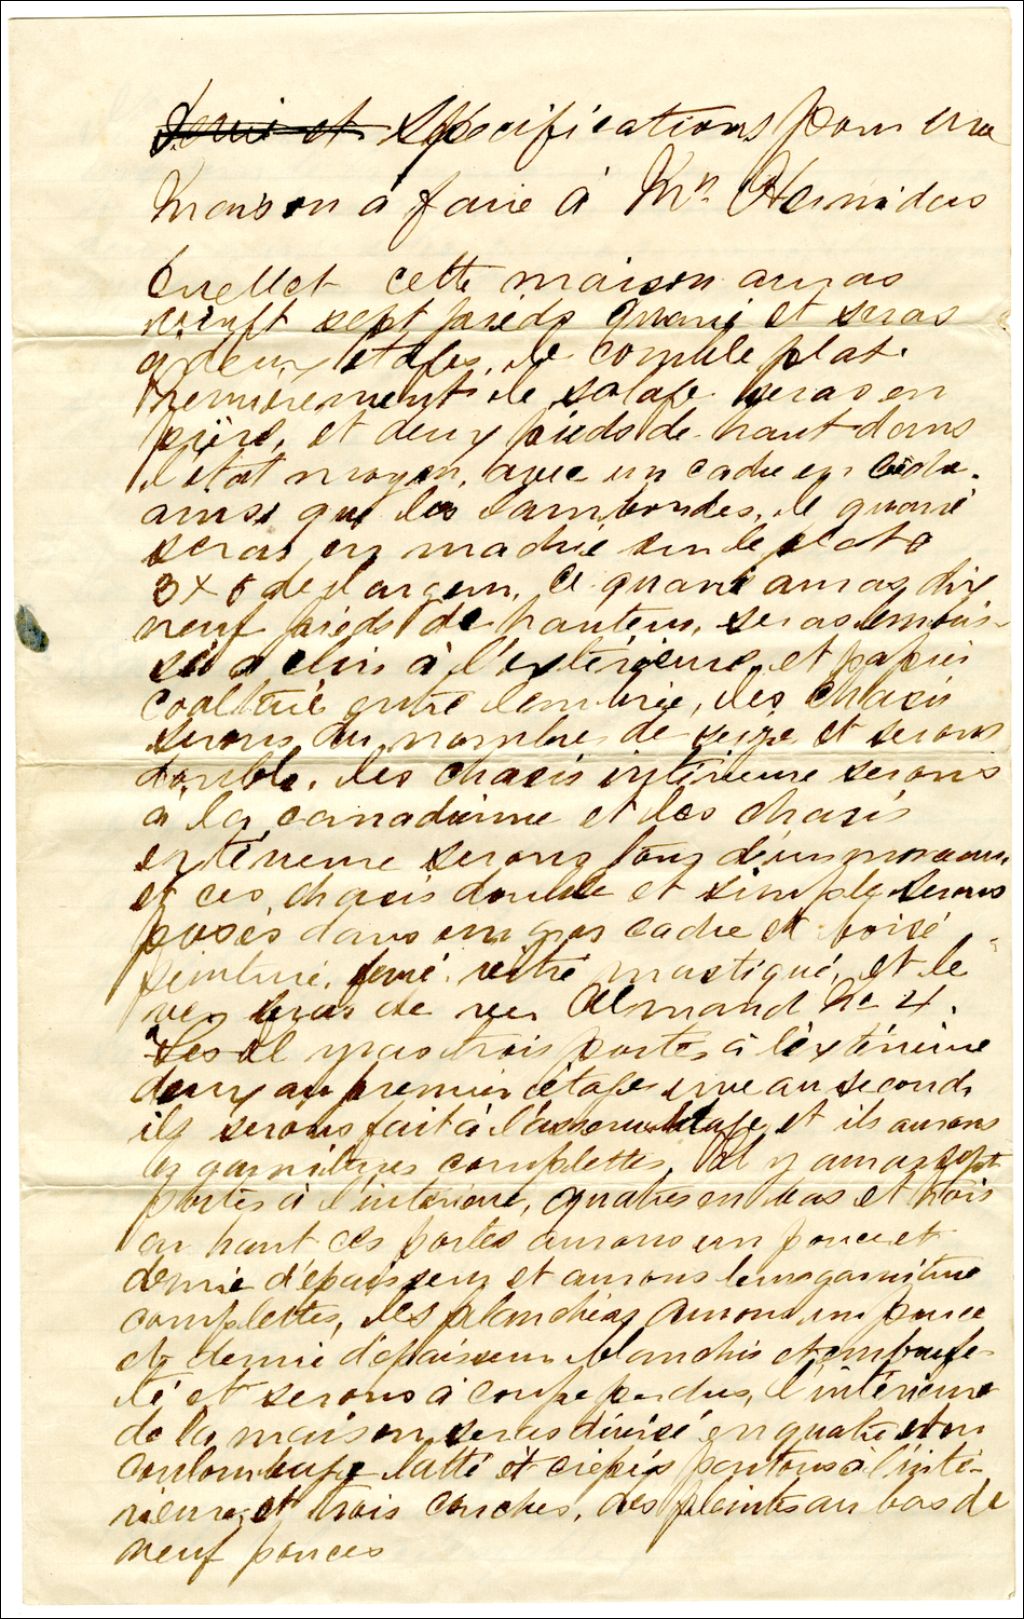 Devis et Spécifications pour une
Maison a faire à Mr. Hermidas
Ouellet cette maison auras
vingt sept pieds quaré et seras
a deux étages, le comble plat.
Premièrement le solage seras en
pière, et deux pieds de haut dans
l'état moyen, avec un cadre en
ainsi que les lambourdes, le quaré
seras en madrié sur le plat
3 x 6 de largeur, Ce quaré auras dix
neuf pieds de hauteur, seras
a clin à l'extérieure, et papier
coaltaré entre lembrie, les chasis
serons du nombre de seize et serons
double, les chasis intérieure serons
à la canadienne et les chasis
extérieure serons tous d'un morceau,
et ces chasis double et simple serons
posés dans un gros cadre et boisé
peinturé, ferré, vitré mastiqué, et le
ver seras de ver Almand No 4.
Il yauras trois portes à l'extérieure
deux au premier étage une au second,
ils serons fait à l'assemblage, et ils aurons
les garnitures complettes, Il y auras sept
portes à l'intérieure, quatres en bas et trois
en haut ces portes aurons un pouce et
demie d'épaisseur et aurons leurs garniture
complettes, les planchers aurons un pouce
et demie d'épaisseur blanchis et embouf-
té et serons à coupe perdus, l'intérieure
de la maison seras divisé en quatre et en
coulombage latté et crépis partous à l'inté-
rieure, et trois couches, des pleintes au bas de
neuf pouces